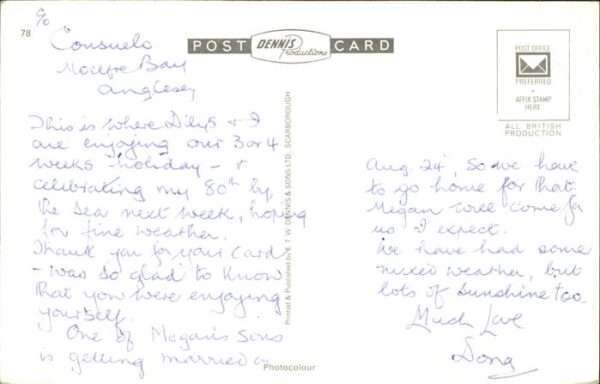 c/o
78
Consuelo
Moelfre Bay
Anglesey
POST DENNIS Productions CARD
POST OFFICE
PREFERRED
AFFIX STAMP
HERE
ALL BRITISH
PRODUCTION
This is where Dilys & I
are enjoying our 3 or 4
weeks holiday - &
celebrating my 80th by
the sea next week, hoping
for fine weather.
Thank you for your card
- was so glad to know
that you were enjoying
yourself.
One of Megan's sons
is getting married on
Printed & Published by E. T. W. DENNIS & SONS LTD., SCARBOROUGH
Aug 24, so we have
to go home for that.
Megan will come for
us I expect.
We have had some
mixed weather, but
lots of sunshine too.
Much Love
Photocolour